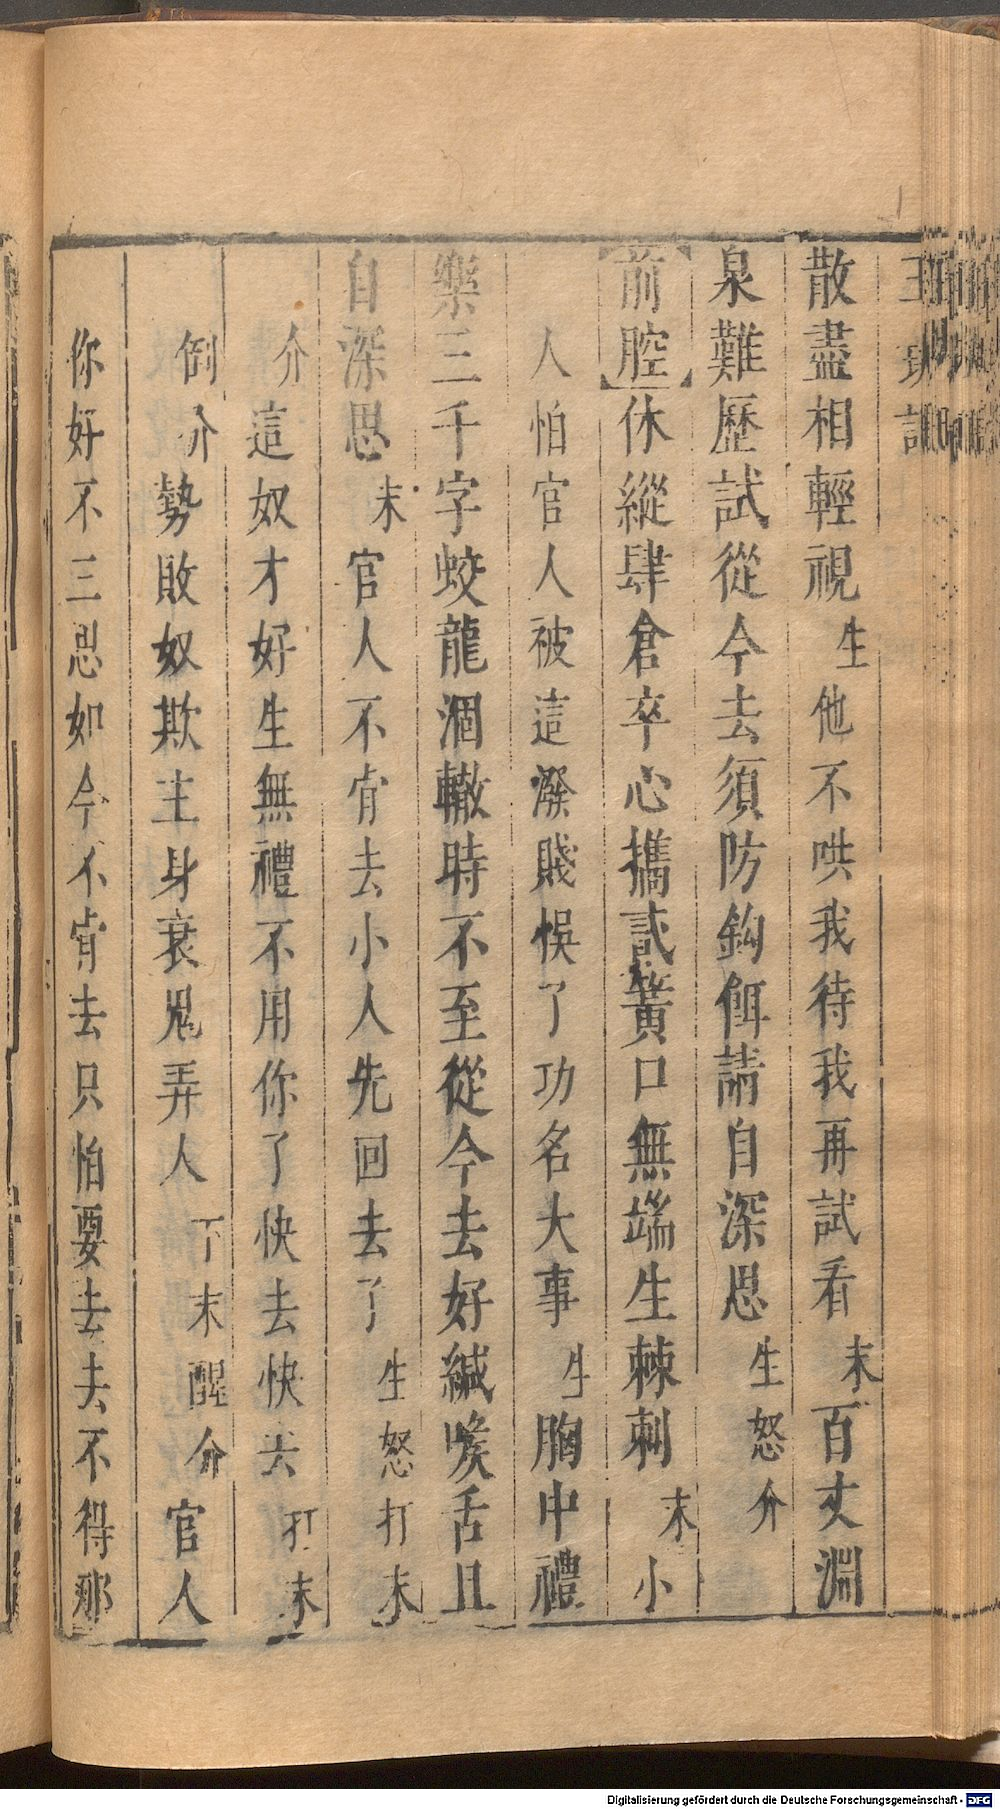 散盡相輕視生他不哄我待我再試看末百丈淵
泉難歷試從今去須防鈎餌請自深思生怒介
前腔休縱肆倉卒心攜貳簧口無端生棘刺末小
人怕官人被這潑賤悞了功名大事生胸中禮
樂三千字蛟龍涸轍時不至從今去好緘喉舌且
自深思末官人不肯去小人先回去了生怒打末
介這奴才好生無禮不用你了快去快去打末
倒介勢敗奴欺主身衰鬼弄人下末醒介官人
你好不三思如今不肯去只怕要去去不得那
Digitalisierung gefördert durch die Deutsche Forschungsgemeinschaft - DFG